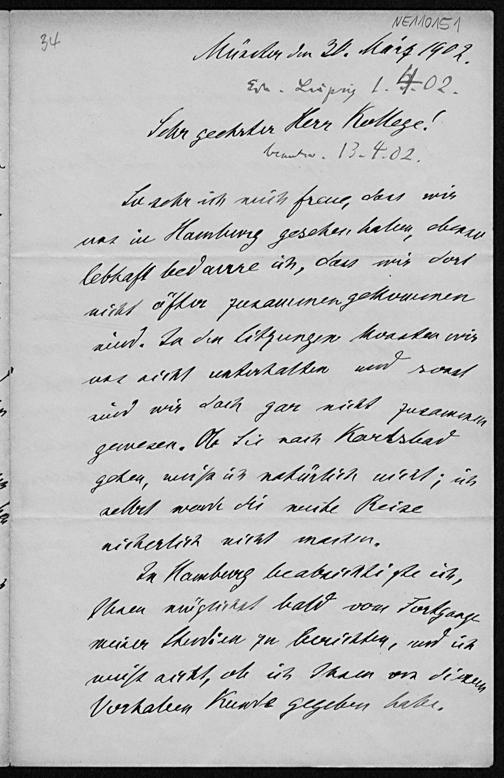 34
NE110151
Münster den 30. März 1902.
Erh. Leipzig 1.4.02.
Sehr geehrter Herr Kollege!
beantw. 13.4.02.
So sehr ich mich freue, dass wir
uns in Hamburg gesehen haben, ebenso
lebhaft bedaure ich, dass wir dort
nicht öfter zusammengekommen
sind. In den Sitzungen konnten wir
uns nicht unterhalten und sonst
sind wir doch gar nicht zusammen
gewesen. Ob Sie nach Karlsbad
gehen, weiß ich natürlich nicht; ich
selbst werde die weite Reise
sicherlich nicht machen.
In Hamburg beabsichtigte ich,
Ihnen möglichst bald vom Fortgange
meiner Studien zu berichten, und ich
weiß nicht, ob ich Ihnen von diesem
Vorhaben Kunde gegeben habe.